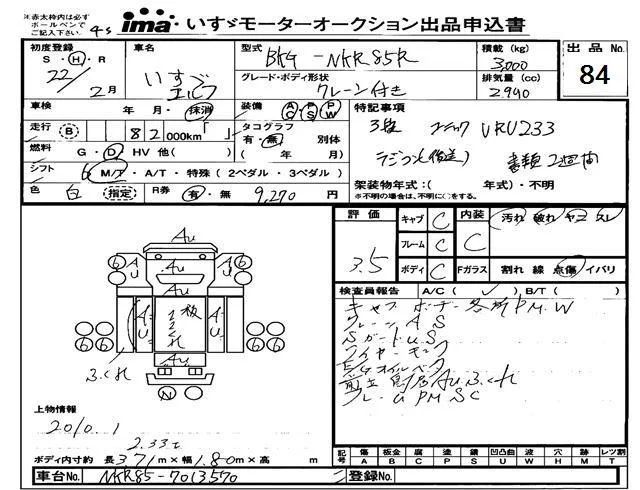 ※赤太枠内は必ず
ボールペンで
ご記入下さい
4s
ima いすゞモーターオークション出品申込書
初度登録 車名 型式 BKG-NKR85R 積載 (kg) 3000 出品 No. 84
S・H・R 22/2月 いすゞ エルフ グレード・ボディ形状 クレーン付き 排気量 (cc) 2990
車検 年 月・抹消 装備 AC PS PW 特記事項
走行 B 82000km「 」 タコグラフ 有・無 別体 3段 ユニック URU233
燃料 G・D・HV 他( ) ( 年 月) ラジコン(後送) 書類2週間
シフト 6 M/T・A/T・特殊 (2ペダル・3ペダル)
色 白 指定 R券 有・無 9,270 円 架装物年式:( 年式)・不明
※不明の場合は、不明に〇をする。
評価 3.5 キャブ C 内装 C 汚れ 破れ ヤニ スレ
フレーム C
ボディ C Fガラス 割れ 線 点傷 イバリ
検査員報告 A/C( ✓ ) B/T( )
キャブ ボデー各所P.M.W
クレーンAS
SガードU.S
タイヤチップ
E/Gオイルベタ
クレーUPMSC
Au
6 AU Au AU 6
AU 板 AU
6 6 Au 6 6
3.クロ
N
上物情報
2010.1
2.33t
ボディ内寸約 長 3.71 m×幅 1.80 m×高 m
記号 傷 板金 腐 塗 錆 凹凸曲 波 穴 跡 レツ割
A B C P S U W H M T
車台No. NKR85-7013570 登録No.